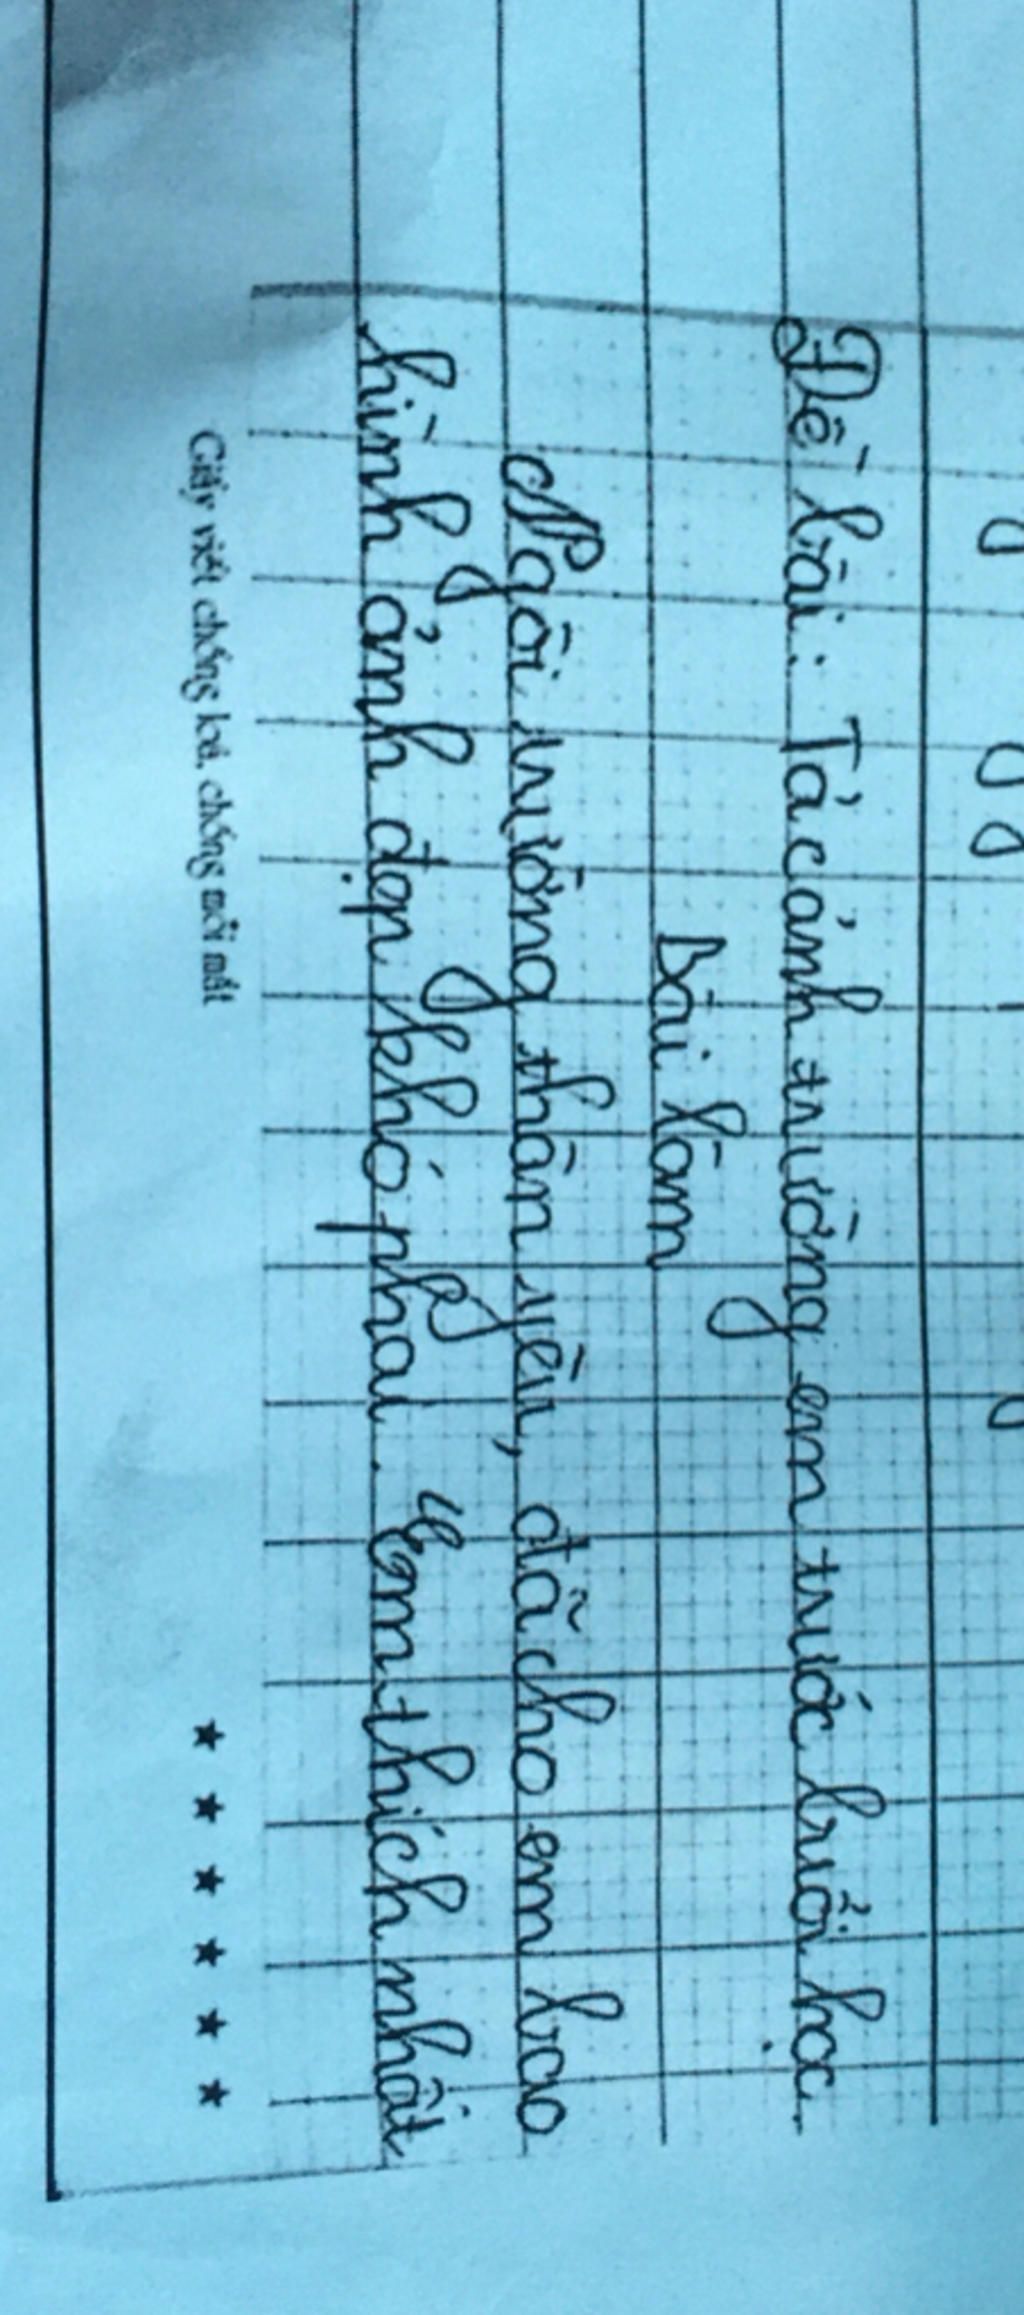 Đề bài: Tả cảnh trường em trước buổi học.
Bài làm
Ngôi trường thân yêu, đã cho em bao
hình ảnh đẹp khó phai. Em thích nhất
Giấy viết chống loá, chống mỏi mắt